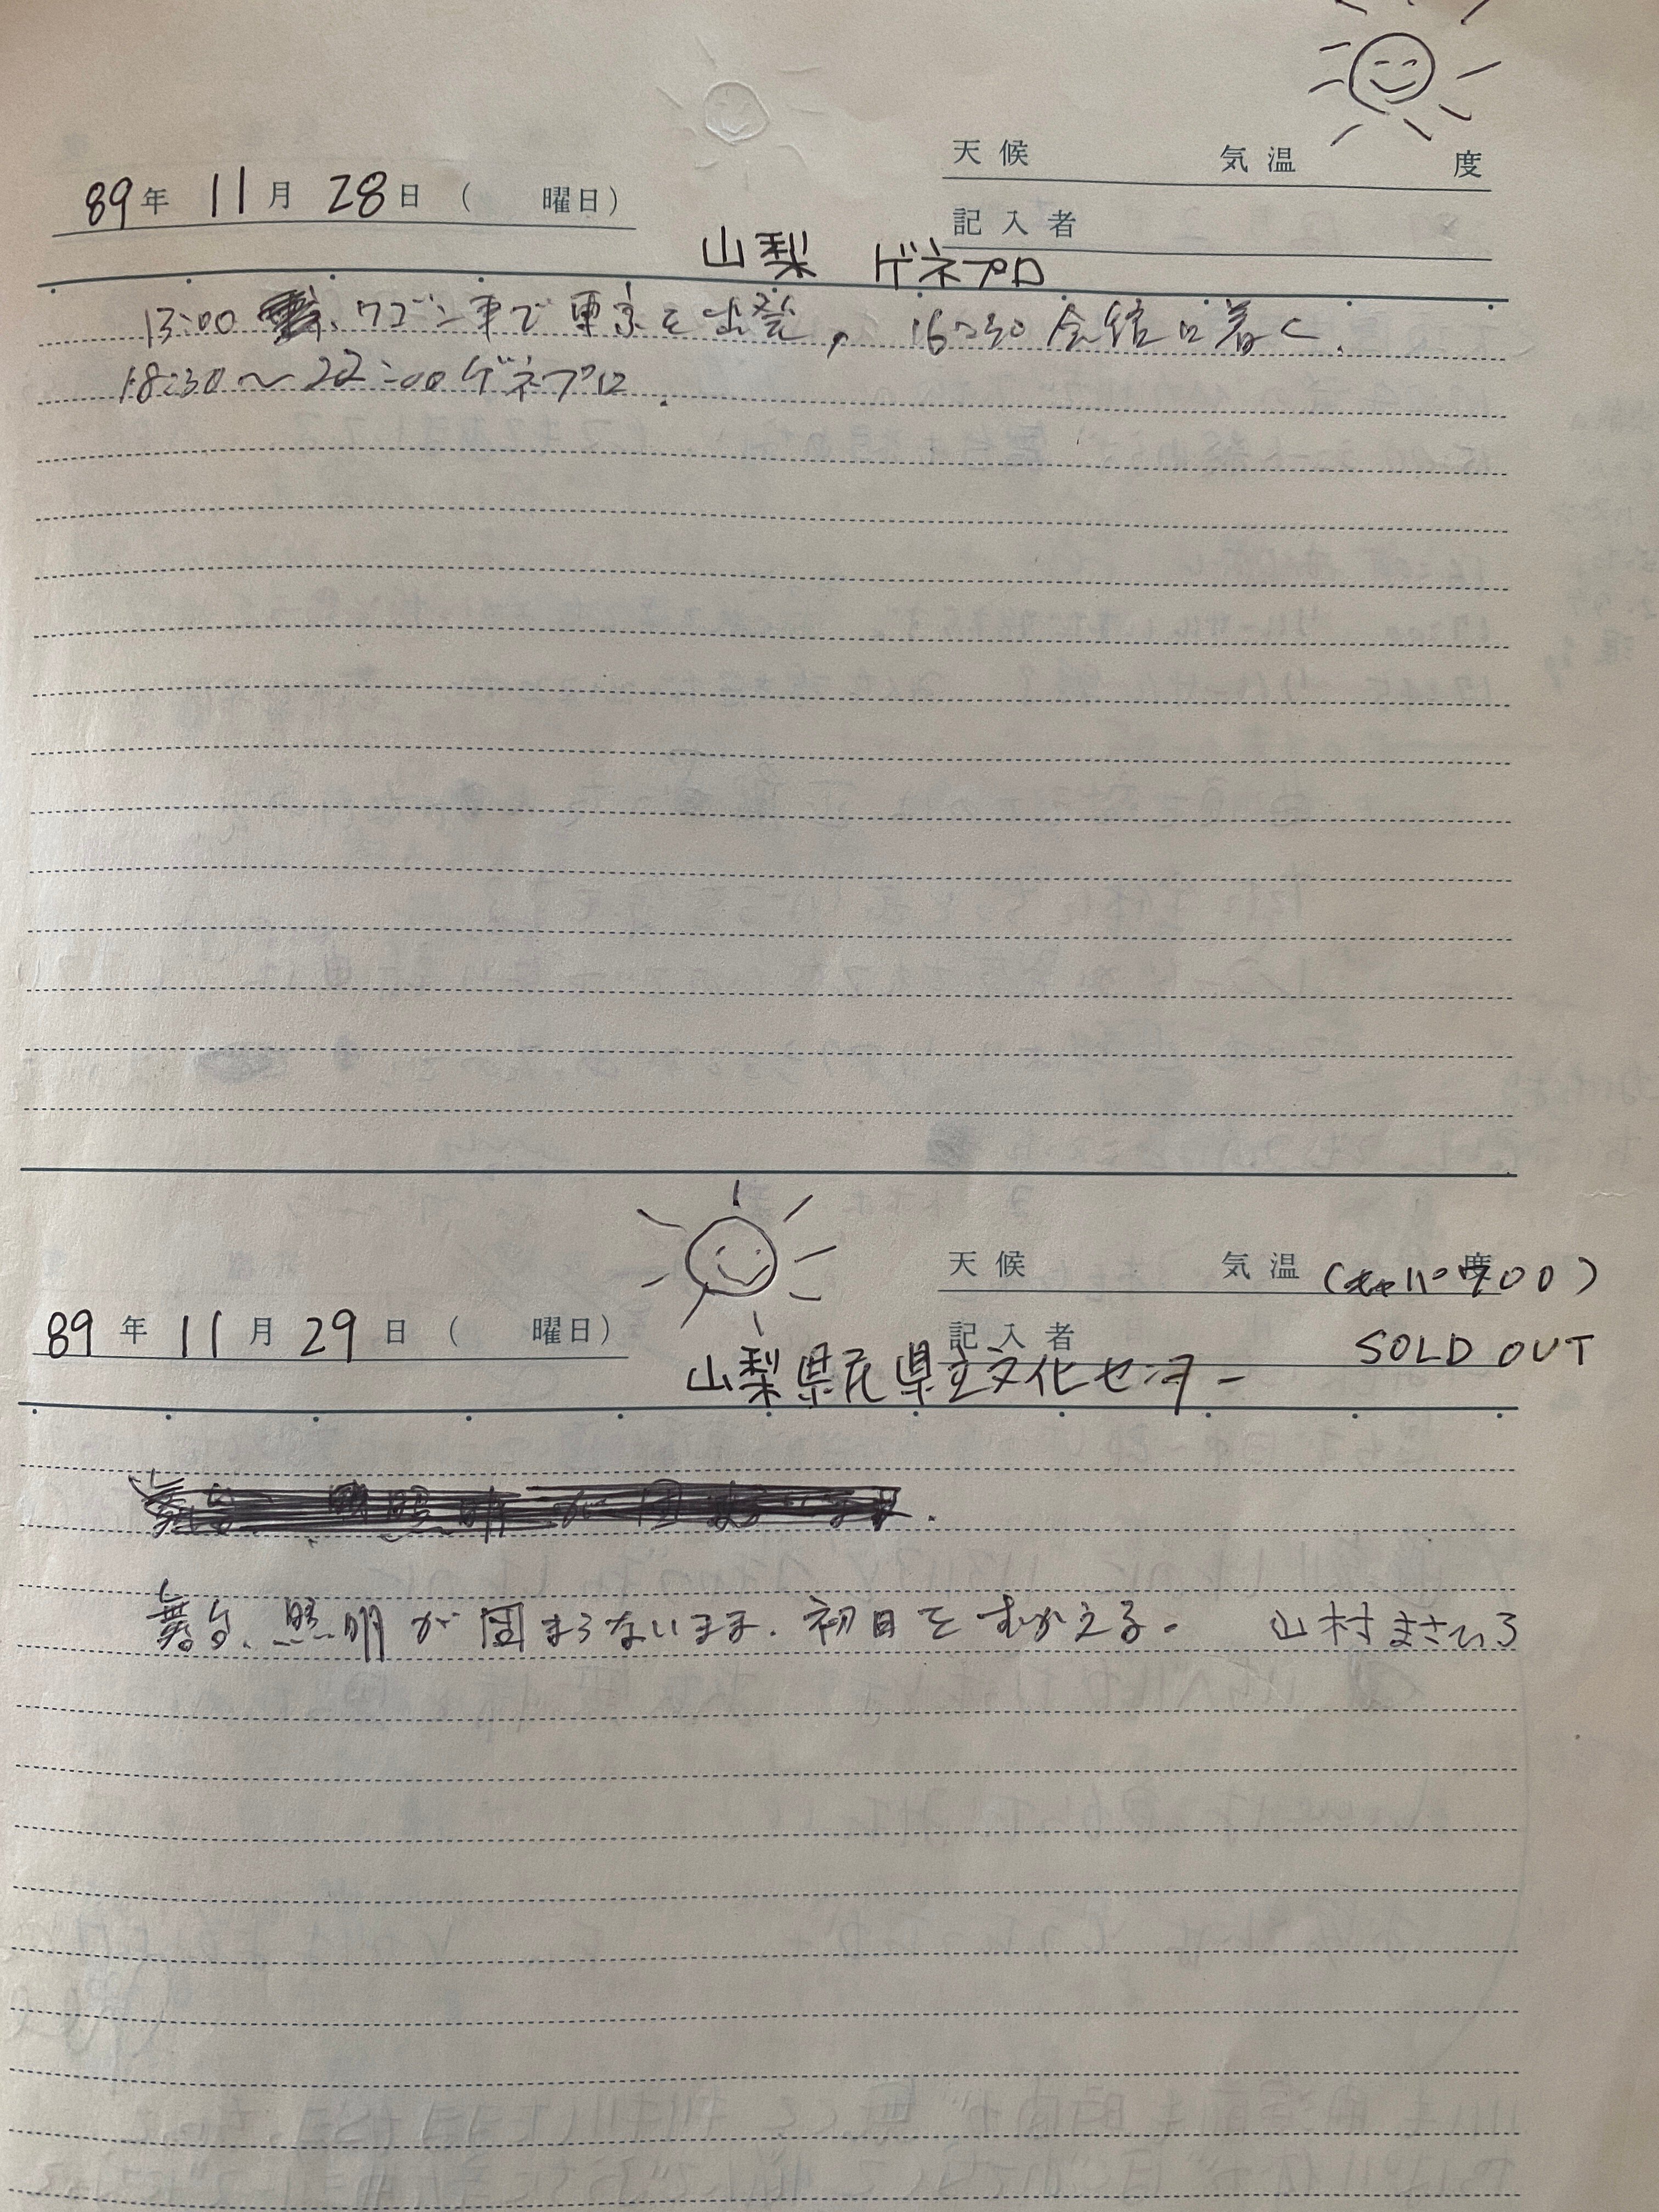 天候 気温 度
89年 11月 28日 ( 曜日)
記入者
山梨 ゲネプロ
13:00 ワゴン車で東京を出発, 16:30 会館に着く.
18:30〜22:00ゲネプロ.
天候 気温 度 (キャパ 700)
89年 11月 29日 ( 曜日)
記入者 SOLD OUT
山梨県民県立文化センター
舞台、照明が固まらないまま.初日をむかえる。 山村まさひろ